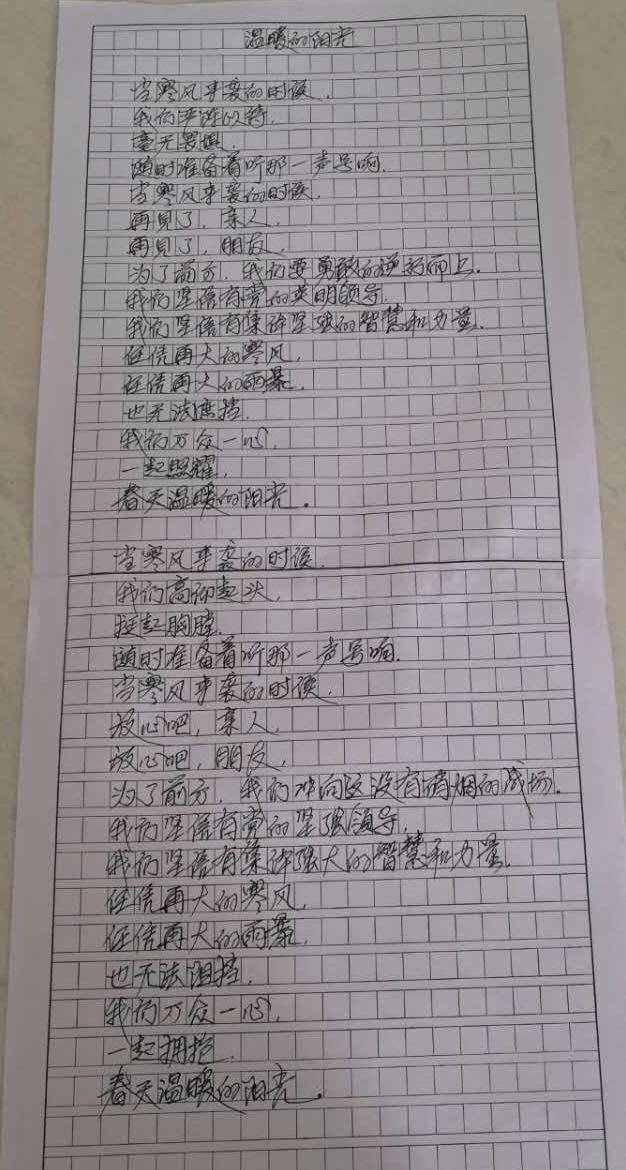 温暖的阳光
当寒风来袭的时候，
我们严阵以待，
毫无畏惧，
随时准备着听那一声号响。
当寒风来袭的时候，
再见了，亲人，
再见了，朋友，
为了前方，我们要勇敢的逆行而上。
我们坚信有党的英明领导，
我们坚信有集体坚强的智慧和力量。
任凭再大的寒风，
任凭再大的雨暴，
也无法遮挡，
我们万众一心，
一起照耀，
春天温暖的阳光。
当寒风来袭的时候，
我们高仰起头，
挺起胸膛，
随时准备着听那一声号响。
当寒风来袭的时候，
放心吧，亲人，
放心吧，朋友，
为了前方，我们冲向这没有硝烟的战场。
我们坚信有党的坚强领导，
我们坚信有集体强大的智慧和力量。
任凭再大的寒风，
任凭再大的雨暴，
也无法阻挡，
我们万众一心，
一起拥抱，
春天温暖的阳光。